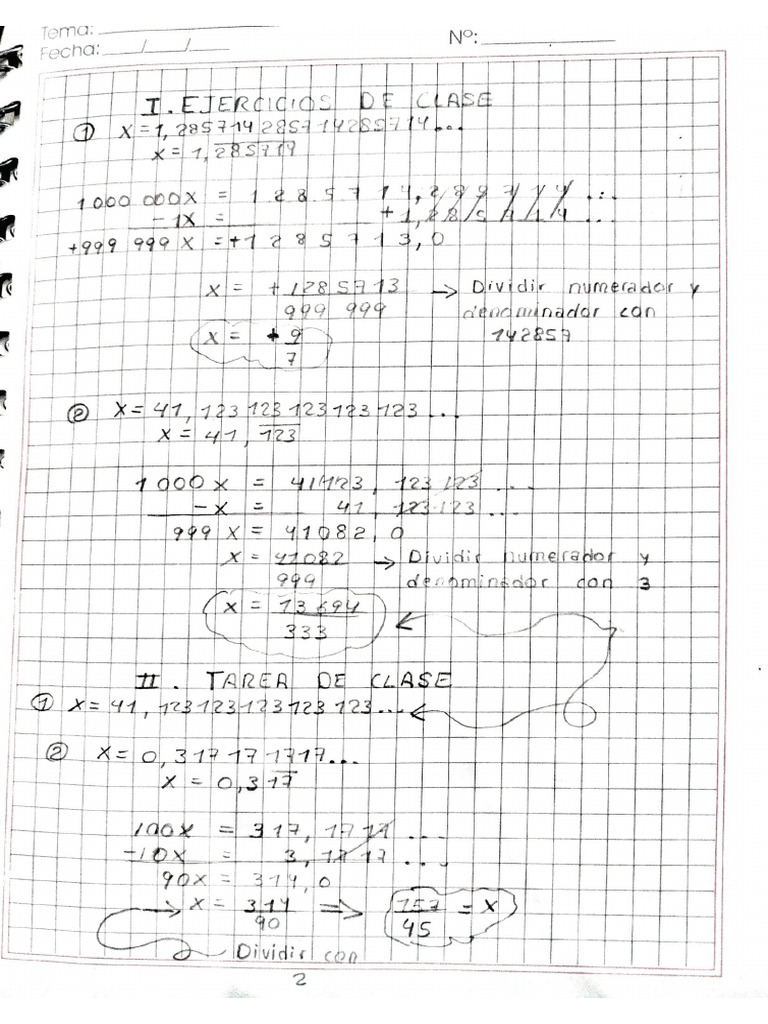 Tema:
Fecha: __/__/__
Nº:
I. EJERCICIOS DE CLASE
① X=1,285714285714285714...
X=1,285714
1000 000X = 1 2 8 5 7 1 4, 2 8 5 7 1 4 ...
-1X = +1, 2 8 5 7 1 4 ...
+999 999X = +1 2 8 5 7 1 3, 0
X = +1285713 → Dividir numerador y
999 999 denominador con
X = +9 142857
7
② X=41, 123 123 123 123 123 ...
X = 41, 123
1000X = 41123, 123 123 ...
-X = 41, 123 123 ...
999 X = 41082, 0
X = 41082 → Dividir numerador y
999 denominador con 3
X = 13 694
333
II. TAREA DE CLASE
① X=41, 123 123 123 123 123 ...
② X= 0,317 17 1717...
X = 0,317
100X = 317, 17 17 ...
-10X = 3, 17 17 ...
90X = 314, 0
X = 314 ⇒ 157 = X
90 45
Dividir con
2